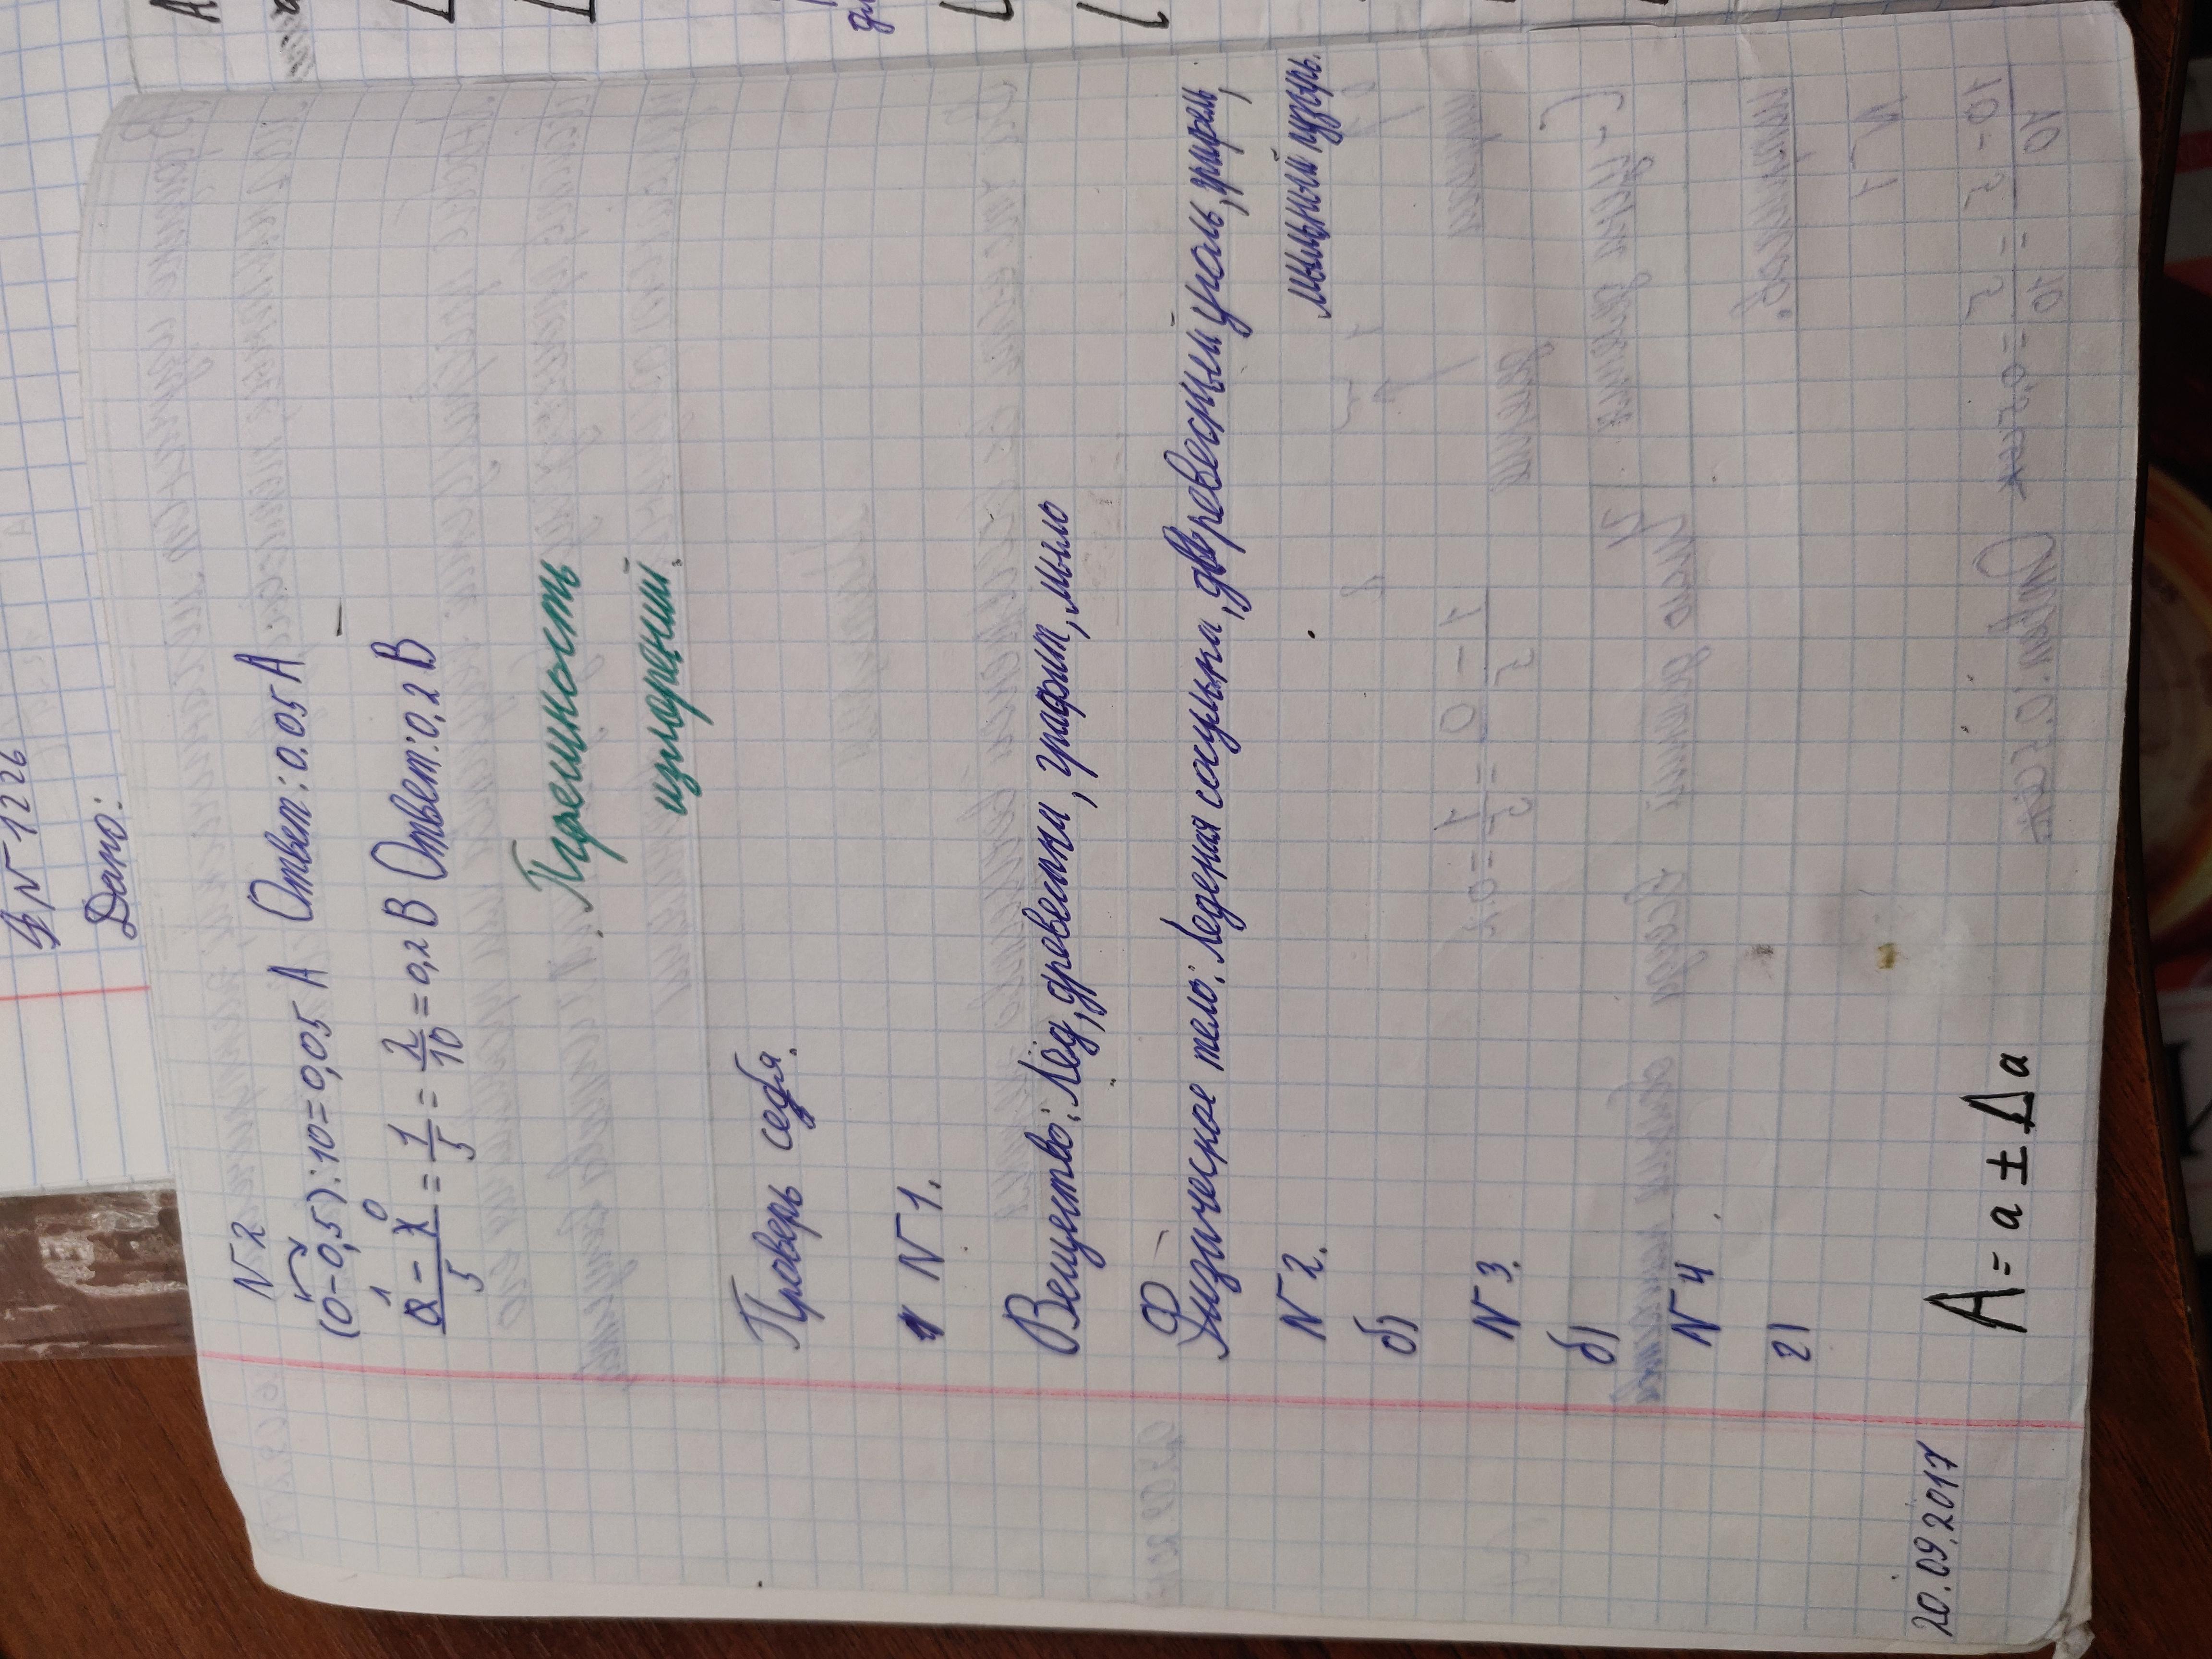 №1226
Дано:
N2
(0-0,5):10=0,05 А Ответ:0.05 А
1 0
5 = 1/5 = 2/10 = 0,2 В Ответ:0,2 В
Погешность
измерений.
Проверь себя.
N1.
Вещество: Лёд, древесина, графит, мыло
Физическое тело: Ледяная сосулька, древесный уголь,
мыльный пузырь.
N2.
б)
N3.
б)
N4
г)
20.09.2017
A = a ± Δa